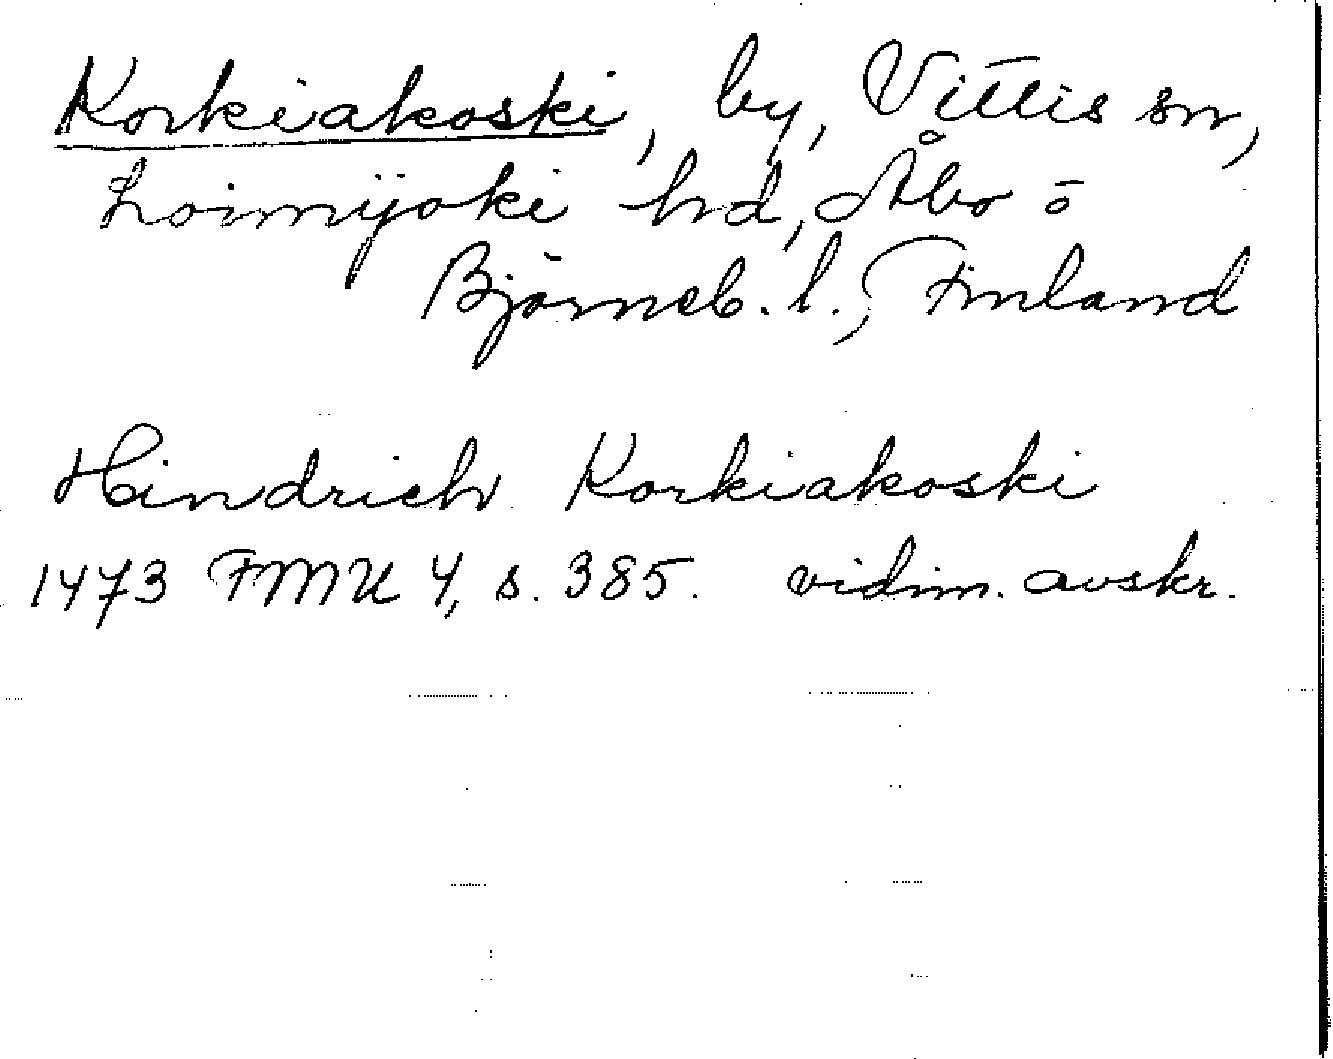 Korkiakoski, by, Vittis sn,
Loimijoki hd, Åbo o
Björneb. l., Finland
Hindrich Korkiakoski
1473 FMU 4, s. 385. vidim. avskr.